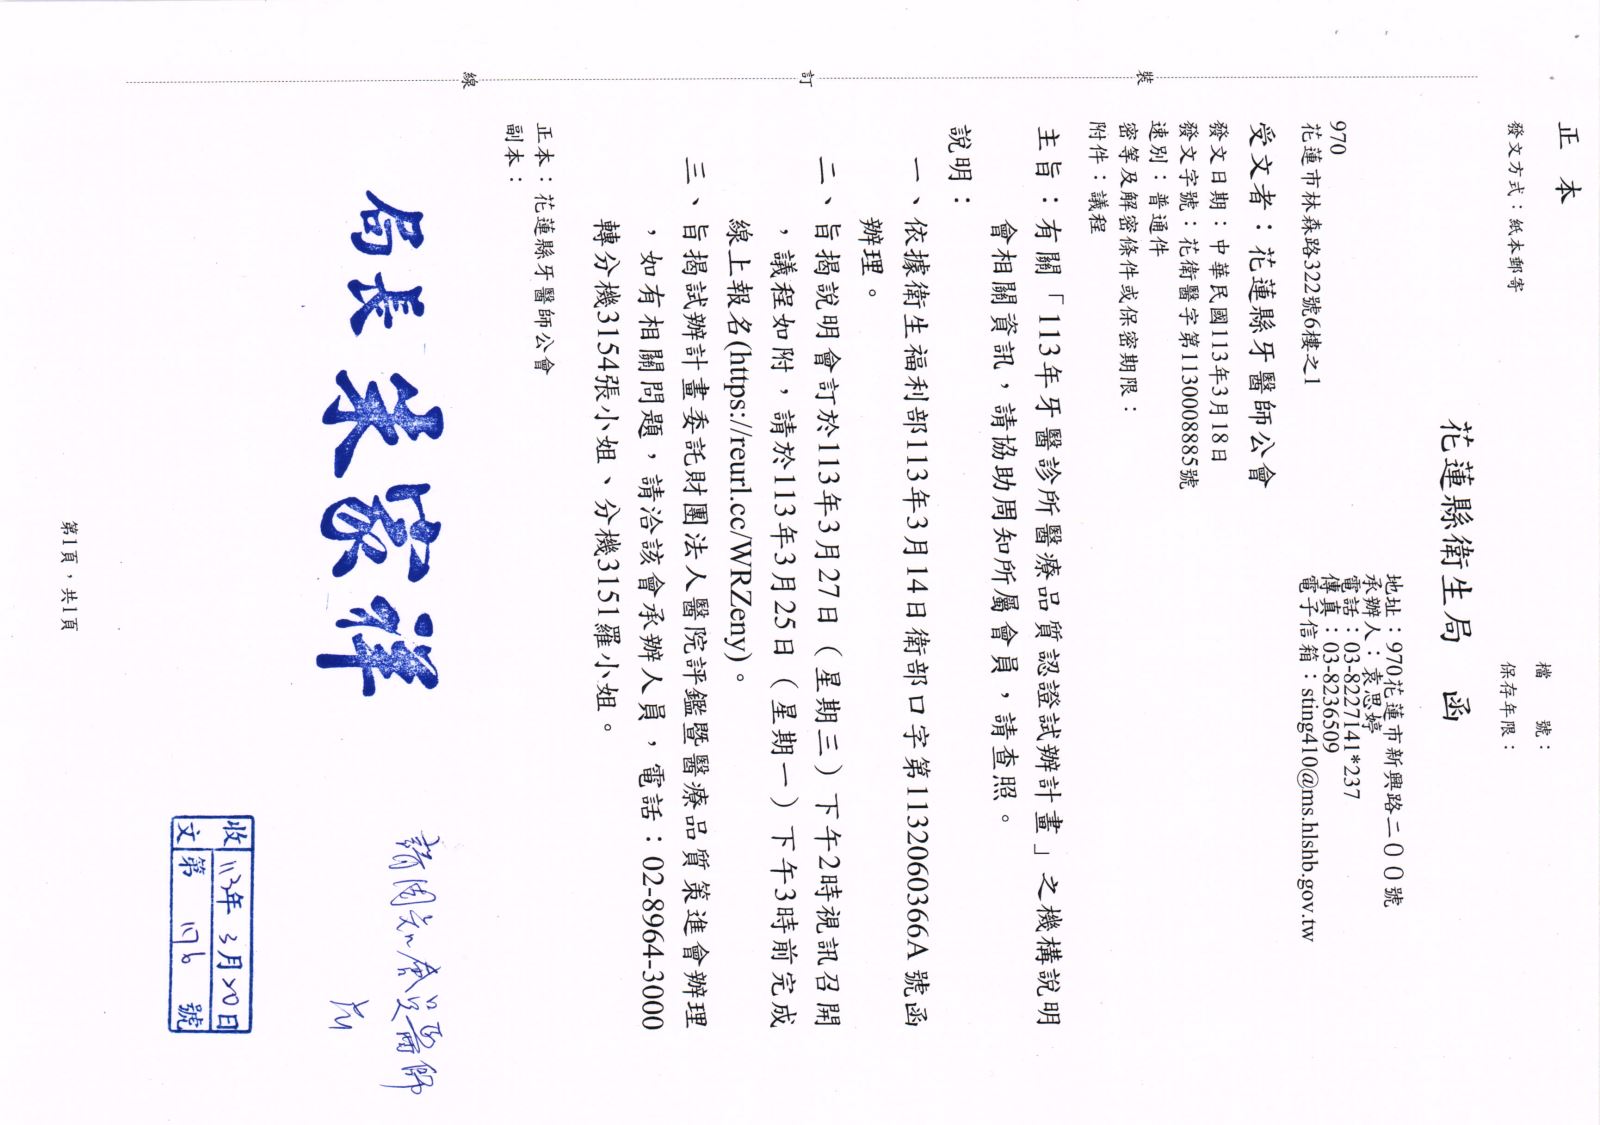 正本
檔　　號：
保存年限：
發文方式：紙本郵寄
花蓮縣衛生局　函
地址：970花蓮市新興路二００號
承辦人：袁思婷
電話：03-8227141*237
傳真：03-8236509
電子信箱：sting410@ms.hlshb.gov.tw
970
花蓮市林森路322號6樓之1
受文者：花蓮縣牙醫師公會
發文日期：中華民國113年3月18日
發文字號：花衛醫字第1130008885號
速別：普通件
密等及解密條件或保密期限：
附件：議程
主旨：有關「113年牙醫診所醫療品質認證試辦計畫」之機構說明
會相關資訊，請協助周知所屬會員，請查照。
說明：
一、依據衛生福利部113年3月14日衛部口字第1132060366A號函
辦理。
二、旨揭說明會訂於113年3月27日（星期三）下午2時視訊召開
，議程如附，請於113年3月25日（星期一）下午3時前完成
線上報名(https://reurl.cc/WRZeny)。
三、旨揭試辦計畫委託財團法人醫院評鑑暨醫療品質策進會辦理
，如有相關問題，請洽該會承辦人員，電話：02-8964-3000
轉分機3154張小姐、分機3151羅小姐。
正本：花蓮縣牙醫師公會
副本：
局長 朱家祥
請周知會員醫師
收文
113年3月20日
第176號
裝
訂
線
第1頁，共1頁